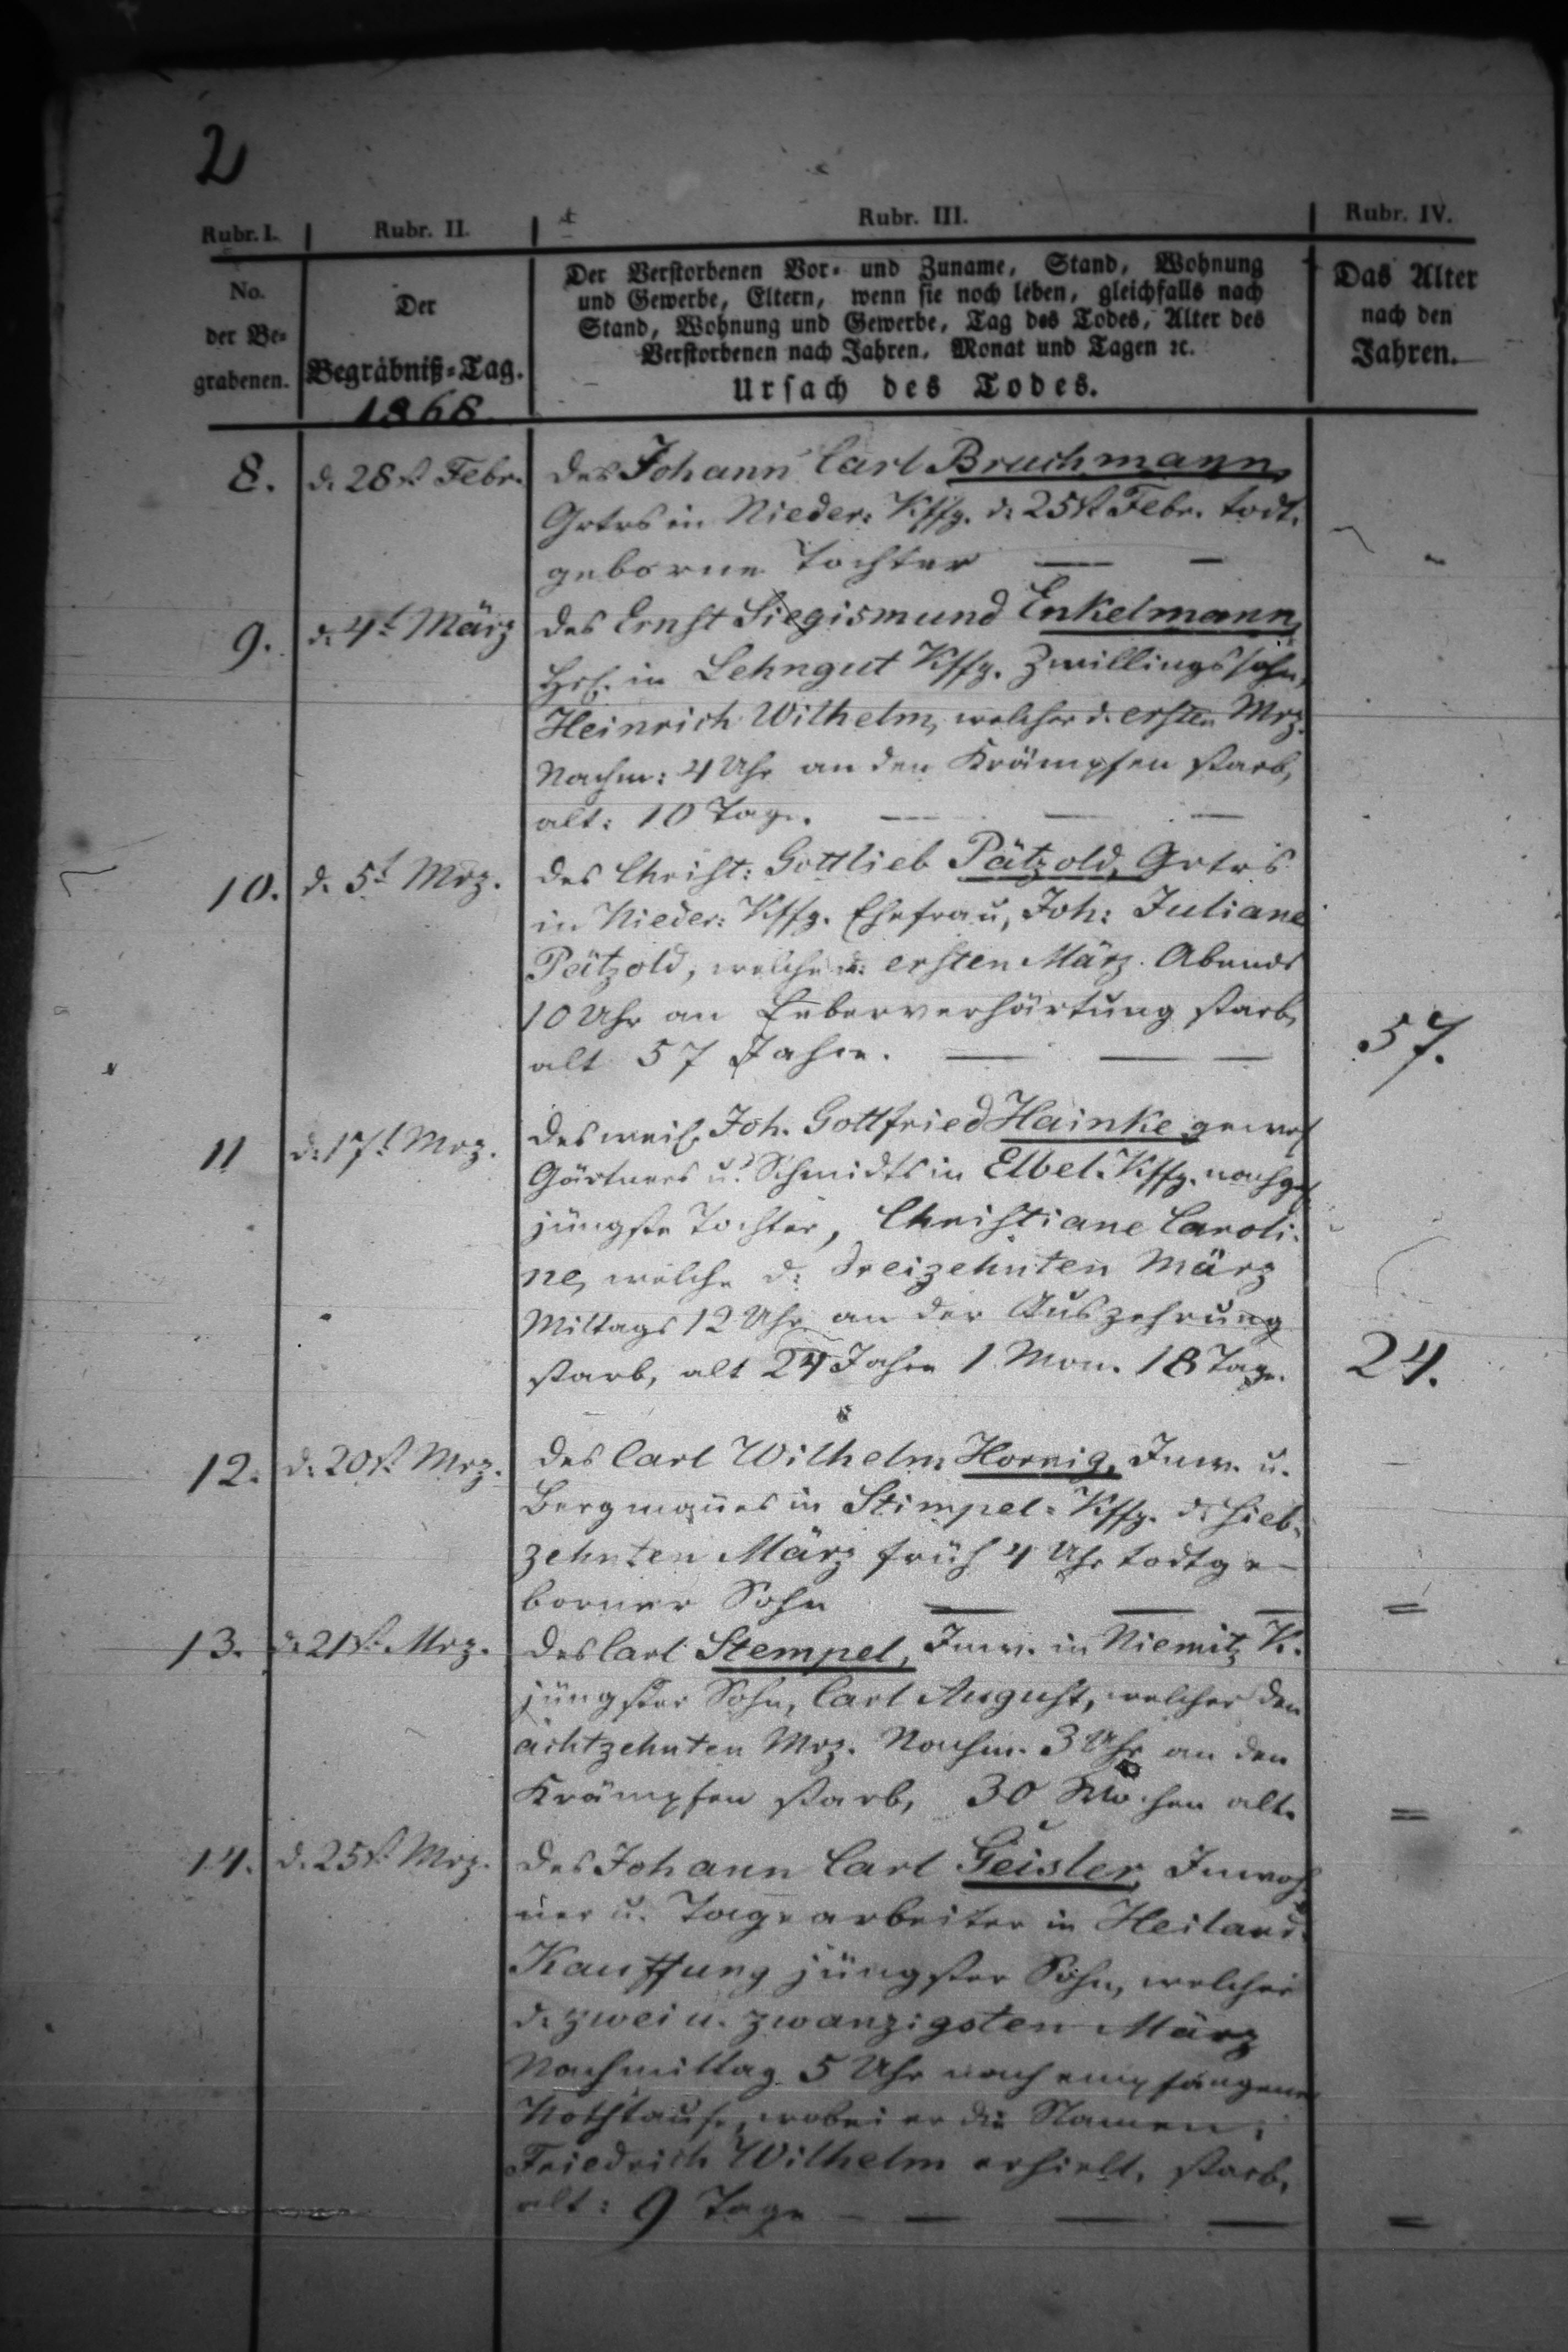 2
Rubr. I. Rubr. II. Rubr. III. Rubr. IV.
No. der Be- grabenen.
Der Begräbniß-Tag.
1868.
Der Verstorbenen Vor- und Zuname, Stand, Wohnung
und Gewerbe, Eltern, wenn sie noch leben, gleichfalls nach
Stand, Wohnung und Gewerbe, Tag des Todes, Alter des
Verstorbenen nach Jahren, Monat und Tagen ꝛc.
Ursach des Todes.
Das Alter
nach den
Jahren.
8. d. 28st Febr. des Johann Carl Bruchmann,
Grtrs in Nieder: Kffg. d: 25st Febr. todt.
geborne Tochter — —
9. d. 4t März des Ernst Siegismund Enkelmann,
Hsl. in Lehngut Kffg. Zwillingssohn,
Heinrich Wilhelm, welcher d. ersten Mrz.
Nachm: 4 Uhr an den Krämpfen starb,
alt: 10 Tage. — — —
10. d. 5t Mrz. des Christ: Gottlieb Pätzold, Grtrs
in Nieder: Kffg. Ehefrau, Joh: Juliane
Pätzold, welche d: ersten März. Abends
10 Uhr an Leberverhärtung starb,
alt 57 Jahre. — — — 57.
11 d. 17t Mrz. des weil. Joh. Gottfried Hainke gewes
Gärtners u. Schmidts in Elbel. Kffg. nachgel
jüngste Tochter, Christiane Caroli-
ne, welche d: dreizehnten März
Mittags 12 Uhr an der Auszehrung
starb, alt 24 Jahre 1 Mon. 18 Tage. 24.
12. d. 20st Mrz. des Carl Wilhelm Hornig, Inw. u.
Bergmañes in Stimpel-Kffg. d. sieb-
zehnten März früh 4 Uhr todtge-
borner Sohn — — — =
13. d. 21st Mrz. des Carl Stempel, Inw. in Niemitz K.
jüngster Sohn, Carl August, welcher den
achtzehnten Mrz. Nachm. 3 Uhr an den
Krämpfen starb, 30 Wochen alt. =
14. d. 25st Mrz. des Johann Carl Geisler, Inwoh
ner u. Tagearbeiter in Heiland-
Kauffung jüngster Sohn, welcher
d. zwei u. zwanzigsten März
Nachmittag 5 Uhr nach empfangener
Nothtaufe, wobei er die Namen:
Friedrich Wilhelm erhielt, starb,
alt: 9 Tage — — — — =